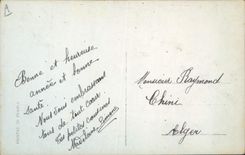 Bonne et heureuse
année et bonne
santé.
Nous vous embrassons
tous de tout cœur
Vos petites cousines
Monsieur Raymond
Chini
Alger